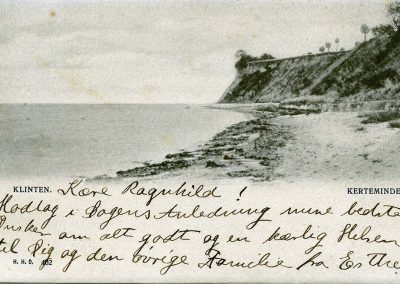 KLINTEN. Kære Ragnhild! KERTEMINDE
Modtag i Dagens Anledning mine bedste
Ønsker om alt godt og en kærlig Hilsen
til Dig og den øvrige Familie fra Esther
H. H. O.